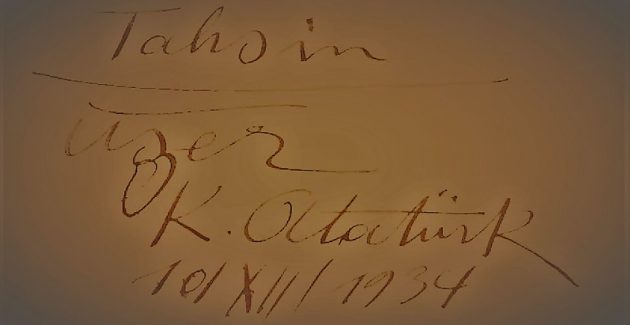 Tahsin
Uzer
K. Atatürk
10/XII/1934